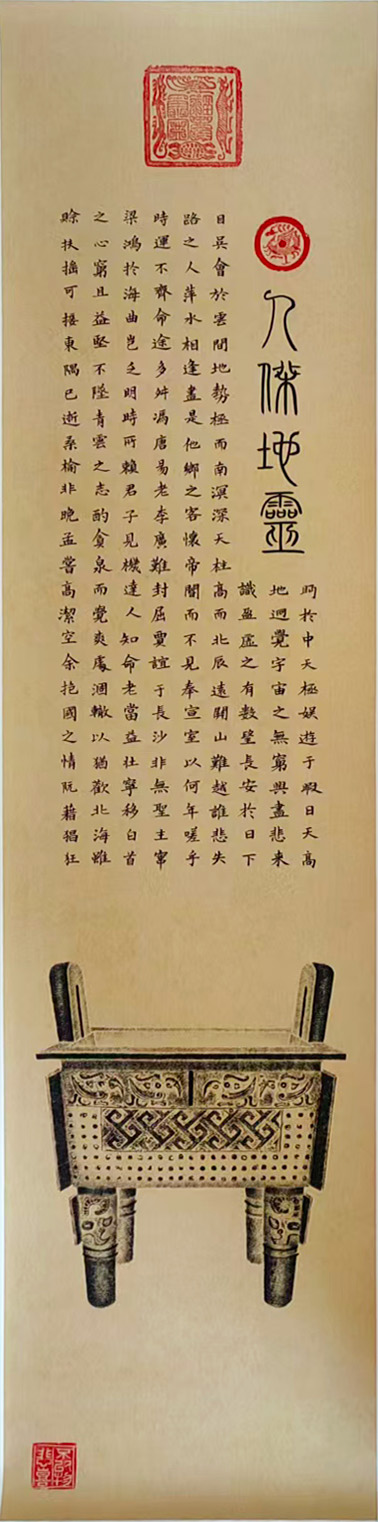 人傑地靈
眄於中天極娛遊于暇日天高
地迥覺宇宙之無窮興盡悲来
識盈虛之有數望長安於日下
目吳會於雲間地勢極而南溟深天柱高而北辰遠關山難越誰悲失
路之人萍水相逢盡是他鄉之客懷帝閽而不見奉宣室以何年嗟乎
時運不齊命途多舛馮唐易老李廣難封屈賈誼于長沙非無聖主竄
梁鴻於海曲豈乏明時所賴君子見機達人知命老當益壯寧移白首
之心窮且益堅不墜青雲之志酌貪泉而覺爽處涸轍以猶歡北海雖
賒扶搖可接東隅已逝桑榆非晚孟嘗高潔空余抱國之情阮藉猖狂